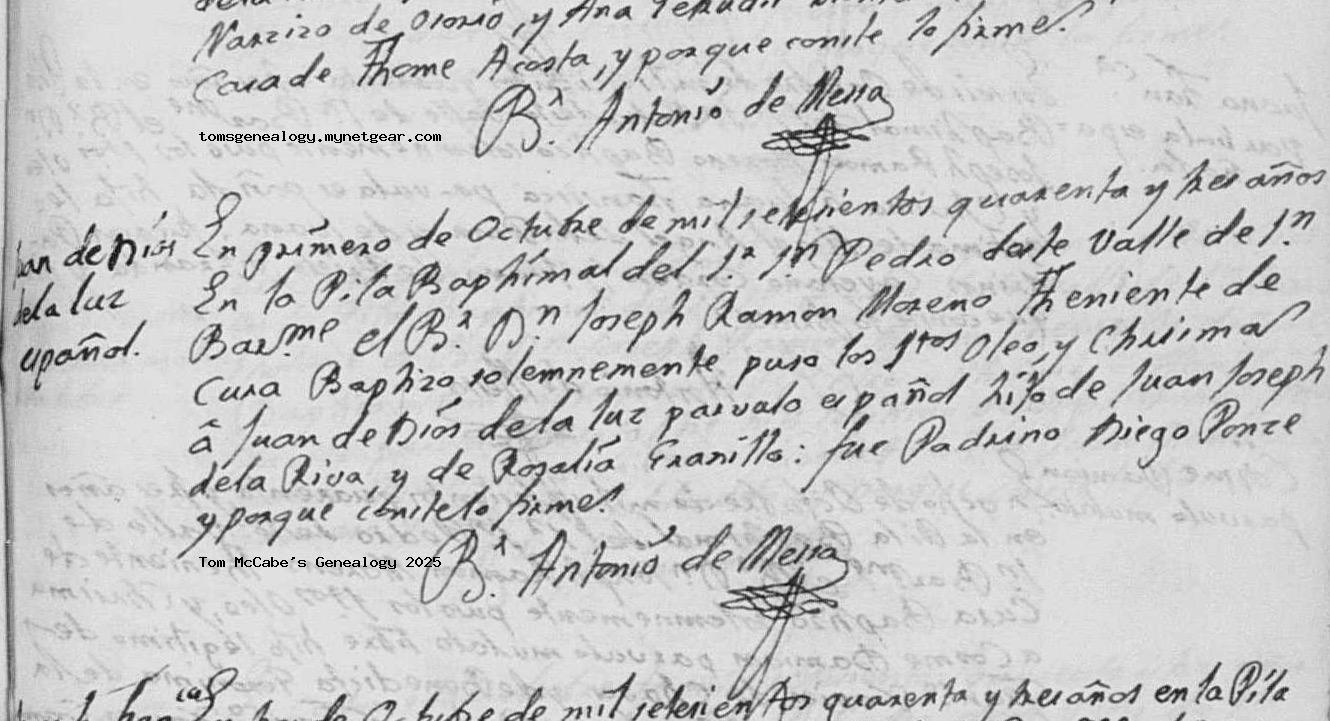 Narziro de Osorio, y Ana
Cura de Thome Acosta, y porque conste lo firme.
B.r Antonio de Messa
tomsgenealogy.mynetgear.com
Juan de Dios
dela luz
español.
En primero de Octubre de mil setesientos quarenta y tres años
En la Pila Baptismal del S.r S.n Pedro deste Valle de S.n
Bar.me el B.r D.n Joseph Ramon Moreno Theniente de
Cura Baptizo solemnemente puso los S.tos Oleo, y Chrisma
â Juan de Dios de la luz parvulo español hijo de Juan Joseph
dela Riva, y de Rosalia Granillo: fue Padrino Diego Ponze
y porque conste lo firme.
Tom McCabe's Genealogy 2025
B.r Antonio de Messa
de Octubre de mil setesientos quarenta y tres años en la Pila